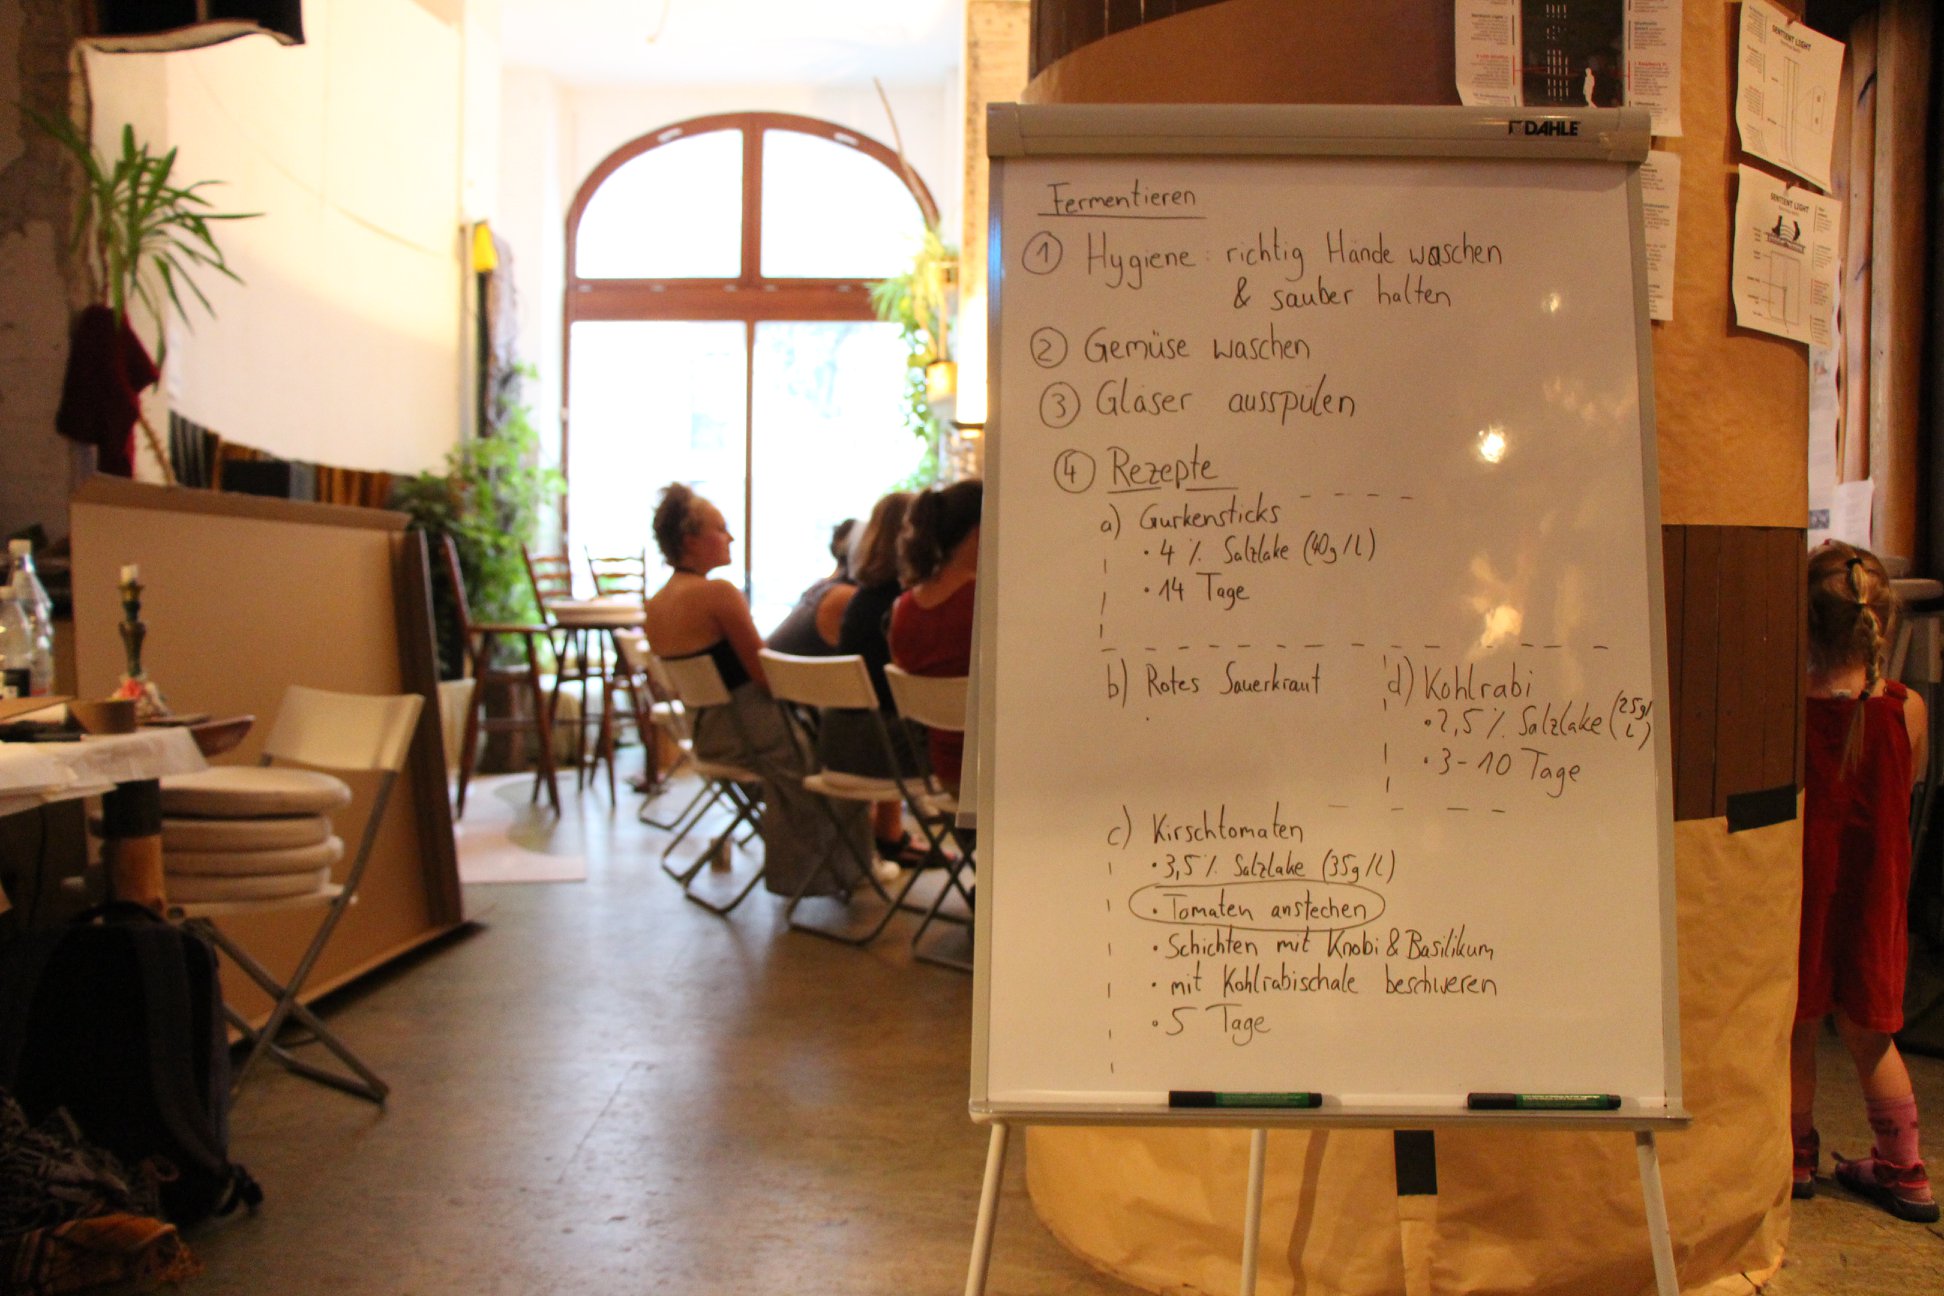 DAHLE
Fermentieren
1 Hygiene: richtig Hände waschen
& sauber halten
2 Gemüse waschen
3 Gläser ausspülen
4 Rezepte
a) Gurkensticks
• 4 % Salzlake (40g/L)
• 14 Tage
b) Rotes Sauerkraut
d) Kohlrabi
• 2,5 % Salzlake (25g/
L)
• 3-10 Tage
c) Kirschtomaten
• 3,5 % Salzlake (35g/L)
• Tomaten anstechen
• Schichten mit Knobi & Basilikum
• mit Kohlrabischale beschweren
• 5 Tage
SENTIENT LIGHT
SENTIENT LIGHT